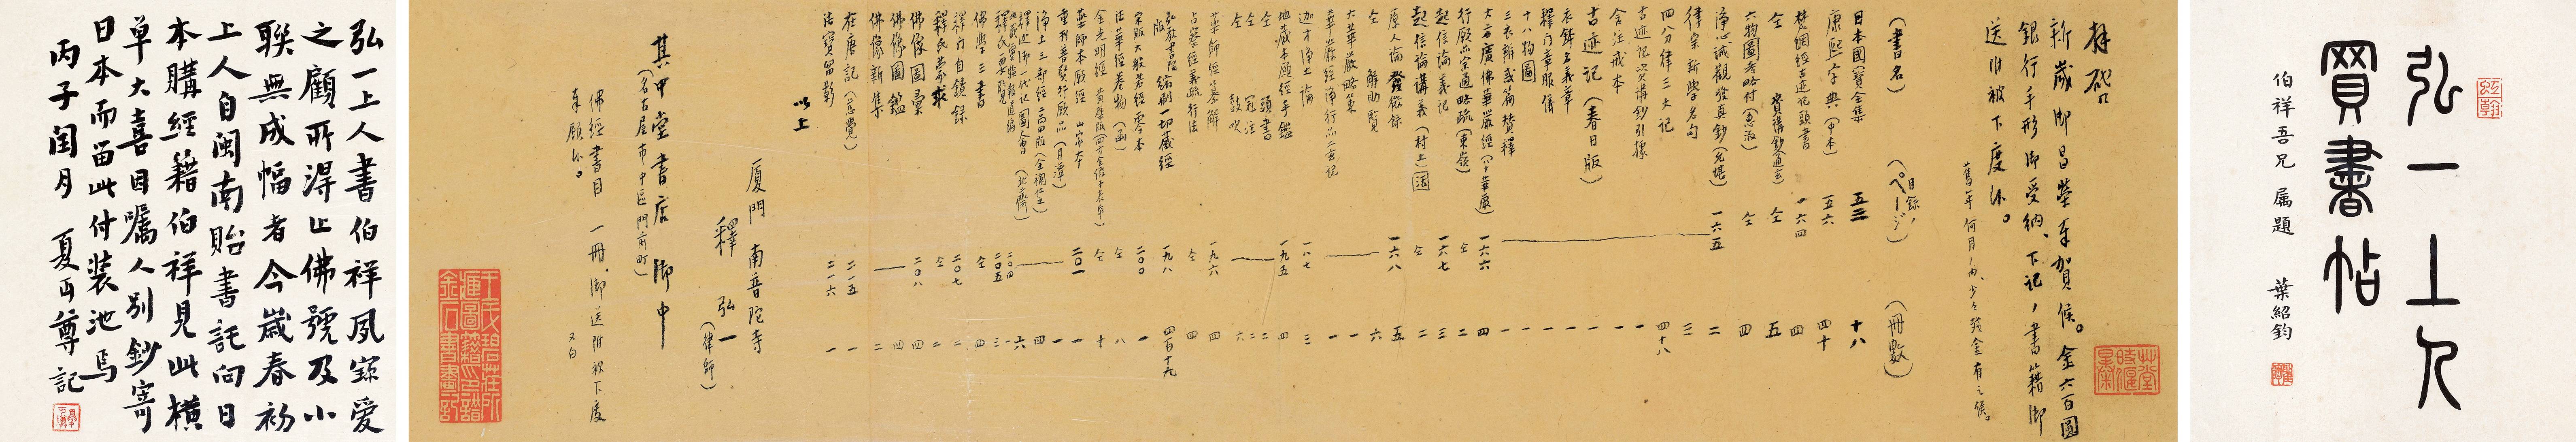 弘一上人
買書帖
伯祥吾兄 屬題 葉紹鈞
拜啓
新歲御昌榮奉賀候。金六百圓
銀行手形御受納、下記ノ書籍御
送附被下度候。
(書名) (目錄ノページ) (冊數)
日本國寶全集 五三 十八
康熙字典(中本) 五六 四十
梵網經古迹記頭書 一六四 四
仝
六物圖考略付 仝 四
淨心誡觀發真鈔 一六五 二
律宗新學名句 三
四分律三大記 四十八
古迹記次講鈔引據 一
含注戒本 一
古迹記(春日版) 一
衣鉢名義章 一
釋門章服儀 一
十八物圖 一
三衣辨惑篇贊釋 一
大方廣佛華嚴經(六十華嚴) 一六六 四
行願品宗通略疏 仝 二
起信論義記 一六七 三
起信論講義(村上) 仝 二
原人論發微錄 一六八 五
仝 解助覽 六
大華嚴略策 一
華嚴經淨行品二玄記 一
迦才淨土論 一八七 三
地藏本願經手鑑 一九五 四
仝 頭書 二
仝 冠注 二
仝 鼓吹 六
藥師經纂解 一九六 四
占察經義疏行法 仝 四
弘教書院版 縮刷一切藏經 一九八 四百十九
宋版大般若經零本 二〇〇 一
法華經卷物 仝 八
金光明經 仝 十
藥師本願經 二〇一 一
普賢行願品 一
淨土三部經 四
釋迦御一代記圖會 六
佛學三書 仝 四
釋門自鏡錄 二〇七 二
釋氏蒙求 仝 二
佛像圖彙 二〇八 四
佛像圖鑑 四
佛像新集 二
在唐記(慈覺) 二一五 一
法寶留影 二一六 一
以上
廈門 南普陀寺
釋 弘一(律師)
其中堂書店 御中
(名古屋市中區門前町)
佛經書目 一冊、御送附被下度
奉願候。 又白
弘一上人書伯祥夙寶愛
之顧所得止佛號及小
聯無成幅者今歲春初
上人自閩南貽書託向日
本購經籍伯祥見此橫
單大喜因囑人別鈔寄
日本而留此付裝池焉
丙子閏月 夏丏尊記